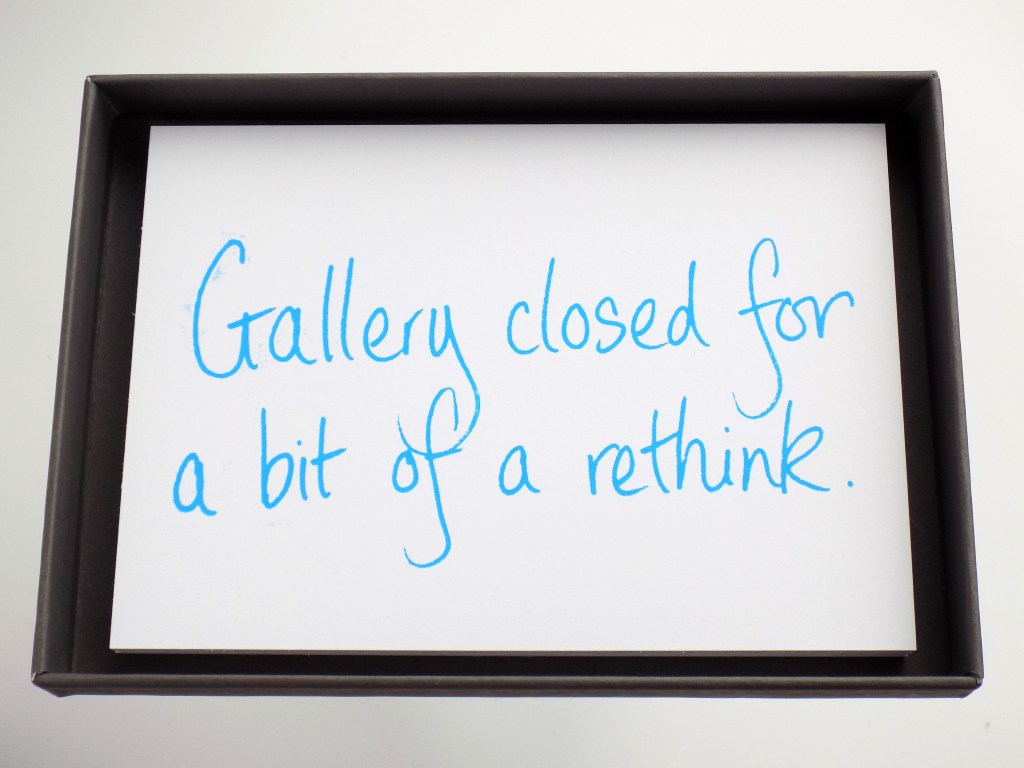 Gallery closed for
a bit of a rethink.